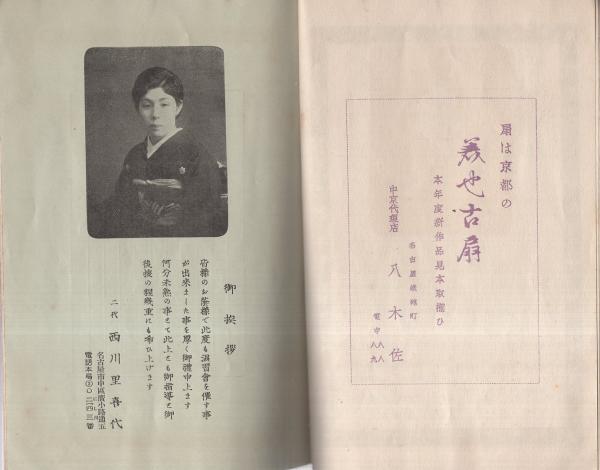 扇は京都の
美也古扇
本年度新作品見本取揃ひ
中京代理店
名古屋
八木佐
電中
御挨拶
皆様のお蔭様で此度も温習會を催す事
が出来ました事を厚く御禮申上ます
何分未熟の事とて此上とも御指導と御
後援の程幾重にも希ひ上げます
二代 西川里喜代
名古屋市中區廣小路通五
電話本局